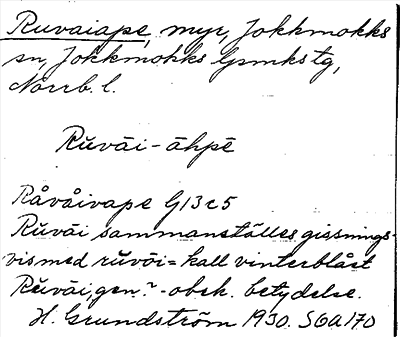 Ruvaiape, myr, Jokkmokks
sn, Jokkmokks lpmkstg,
Norrb. l.
Rŭvāi-āhpē
Råvåivape G13c5
Rŭvāi sammanställes gissnings-
vis med rŭvāi = kall vinterblåst
Rŭvāi, gen.? - obek. betydelse.
H. Grundström 1930. SOA170